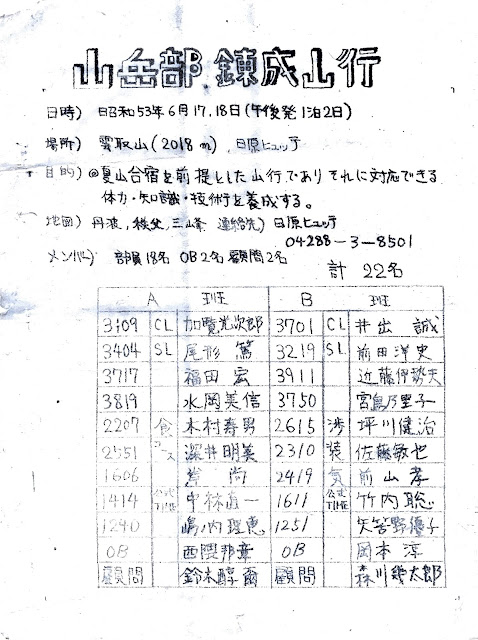 山岳部 錬成山行
日時) 昭和53年6月17,18日(午後発1泊2日)
場所) 雲取山(2018m), 日原ヒュッテ
目的) @夏山合宿を前提とした山行であり それに対応できる
体力・知識・技術を養成する。
地図) 丹波, 秩父, 三峰 連絡先) 日原ヒュッテ
04288-3-8501
メンバー) 部員18名 OB2名 顧問2名
計 22名
A 班 B 班
3109 CL 加覧光次郎 3701 CL 井出 誠
3404 SL 尾形 篤 3219 SL 前田洋史
3717 福田 宏 3911 近藤伊勢夫
3819 水岡美信 3750 宮島乃里子
2207 食 木村寿男 2615 渉 坪川健治
2551 コース 深井明美 2310 装 佐藤敏也
1606 尚 2419 気 前山孝
1414 公式TIME 中林 一 1611 公式TIME 竹内聡
1240 嶋ノ内理恵 1251 矢答野優子
OB 西隈邦 OB 岡本 淳
顧問 鈴木醇爾 顧問 森川幾太郎